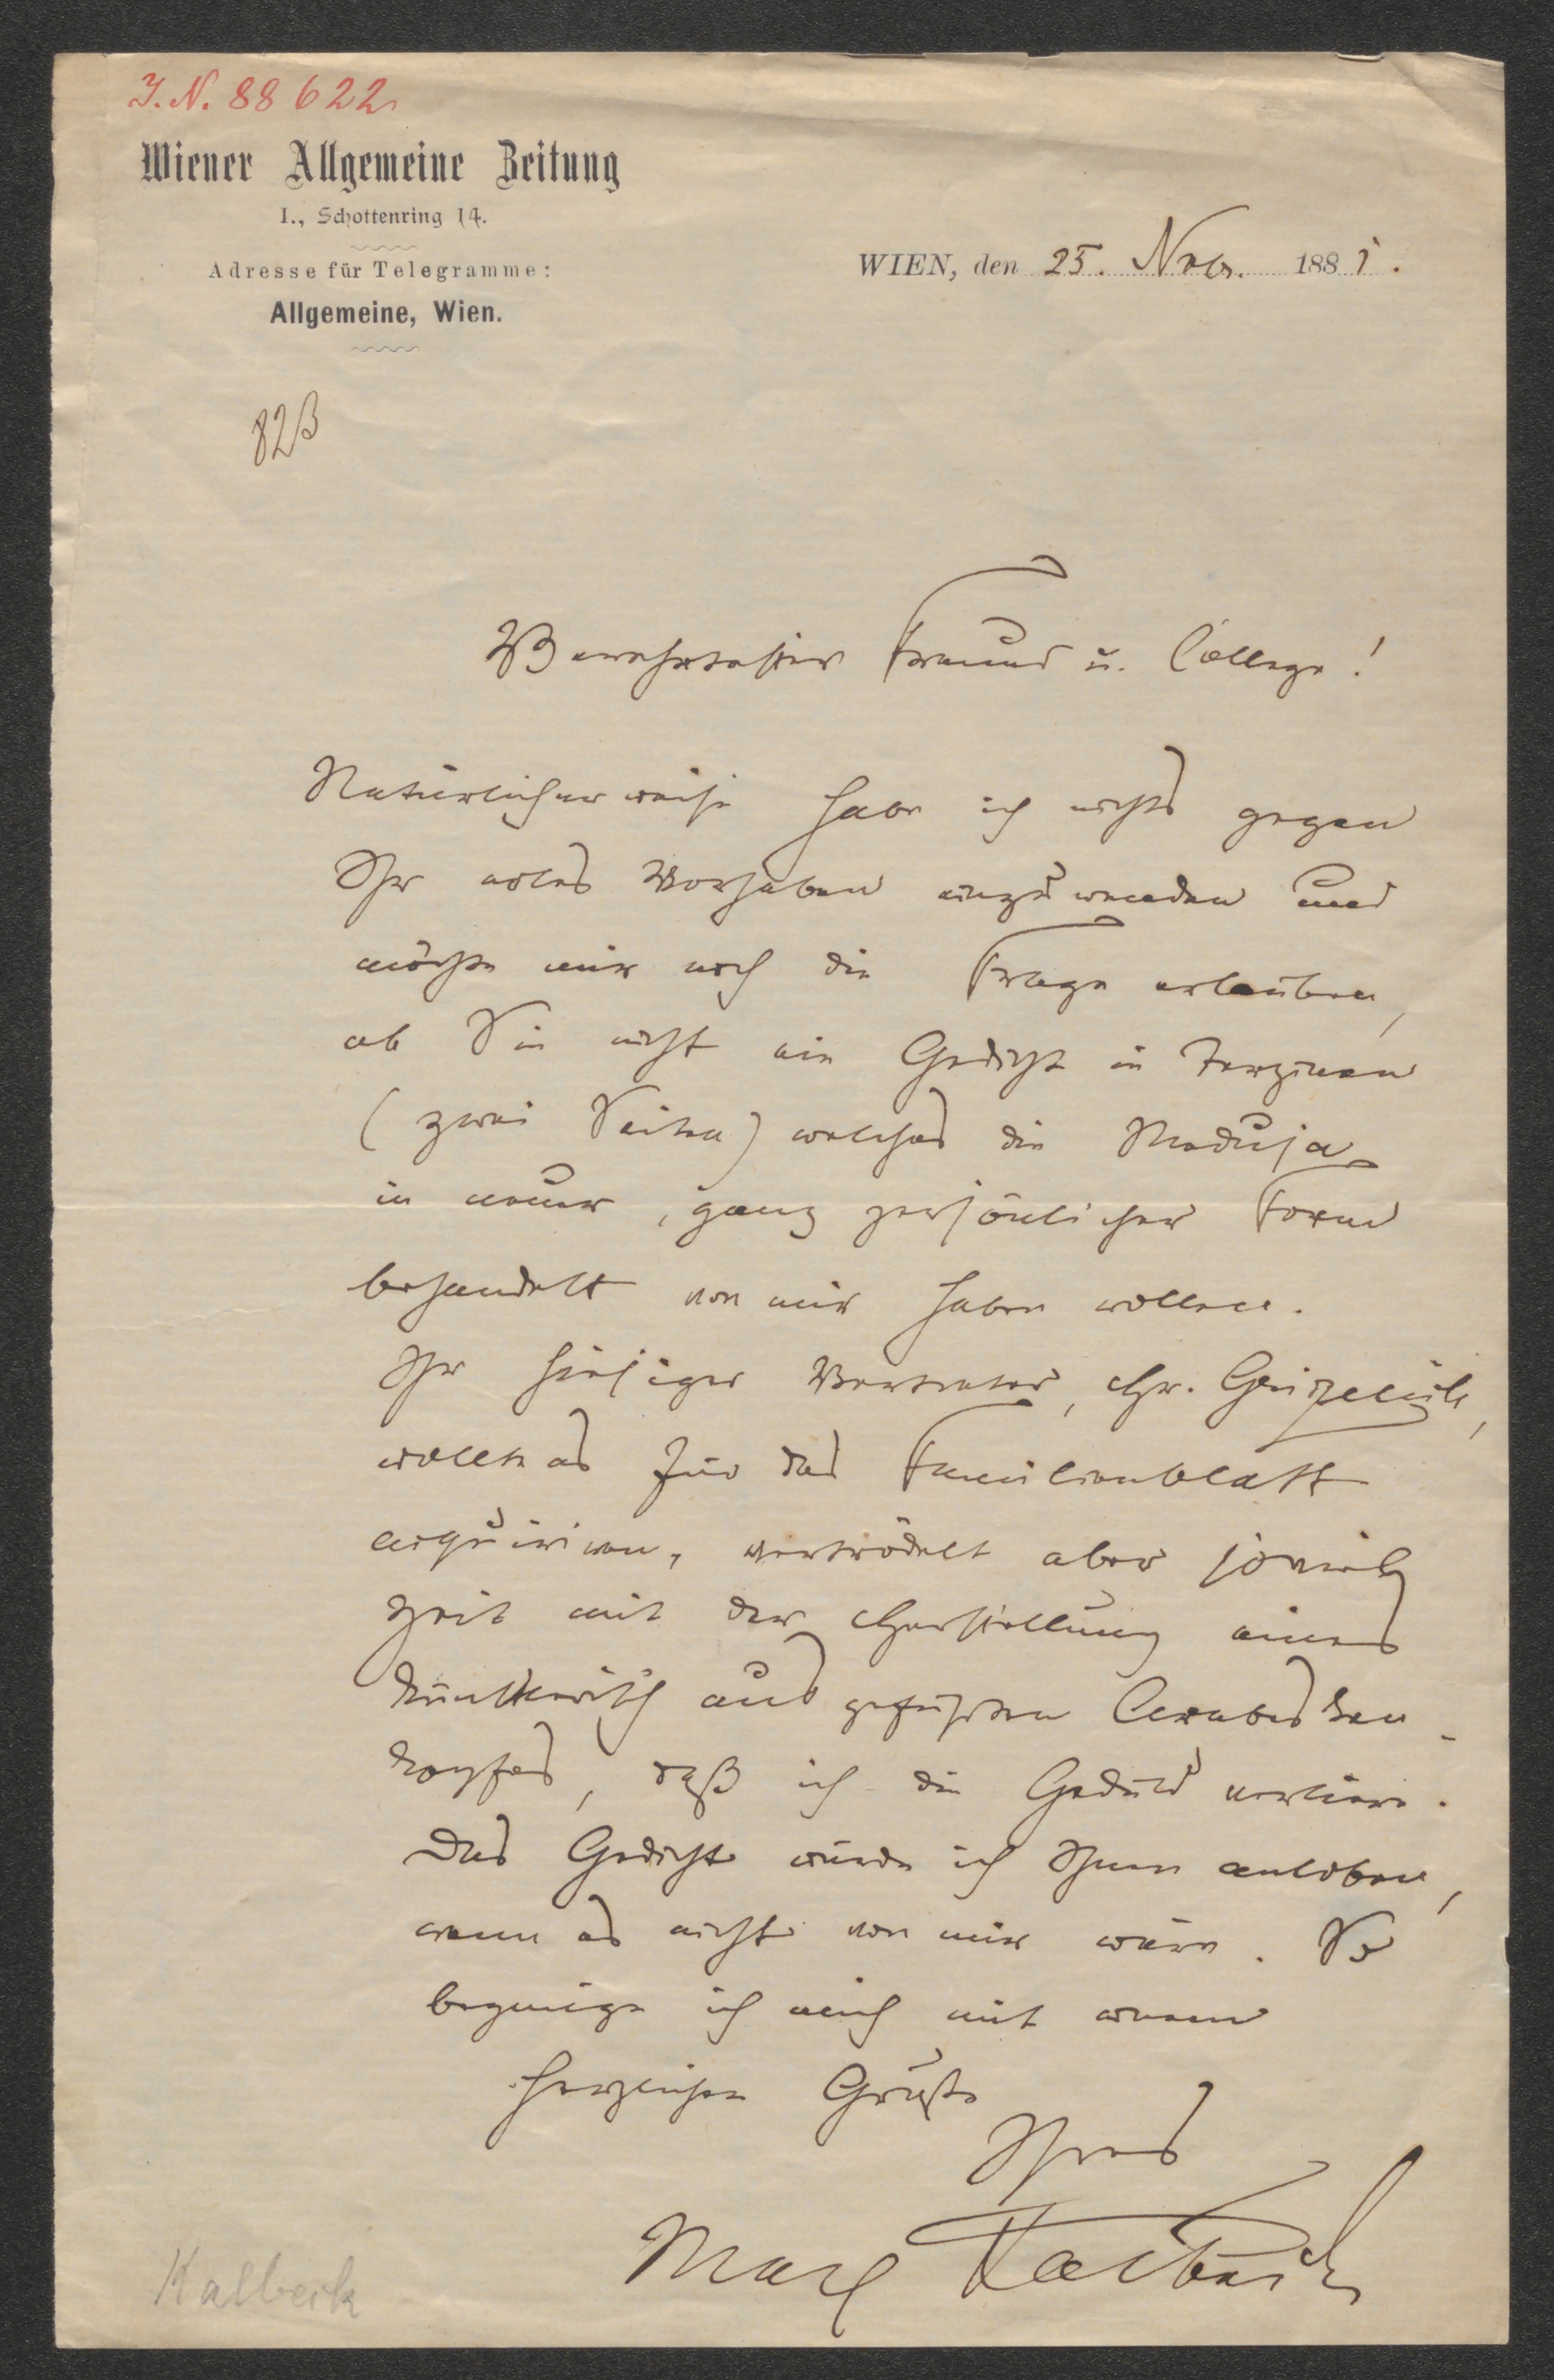 J. N. 88622
Wiener Allgemeine Zeitung
I., Schottenring 14.
Adresse für Telegramme:
Allgemeine, Wien.
WIEN, den 25. Nov. 1881.
82
Verehrtester Freund u. College!
Natürlicherweise habe ich nichts gegen
Ihr edles Vorhaben einzuwenden und
möchte mir noch die Frage erlauben,
ob Sie nicht ein Gedicht in Terzinen
(zwei Seiten) welches die Medusa
in neuer, ganz persönlicher Form
behandelt von mir haben wollen.
Ihr hiesiger Vertreter, Hr.
wollte es für das Familienblatt
acquiriren, vertrödelt aber soviel
Zeit mit der Herstellung eines
künstlerisch ausgeführten Arabesken-
kopfes, daß ich die Geduld verliere.
Das Gedicht würde ich Ihnen anloben,
wenn es nicht von mir wäre. So
begnüge ich mich mit einem
herzlichen Gruße
Ihres
Max Kalbeck
Kalbeck